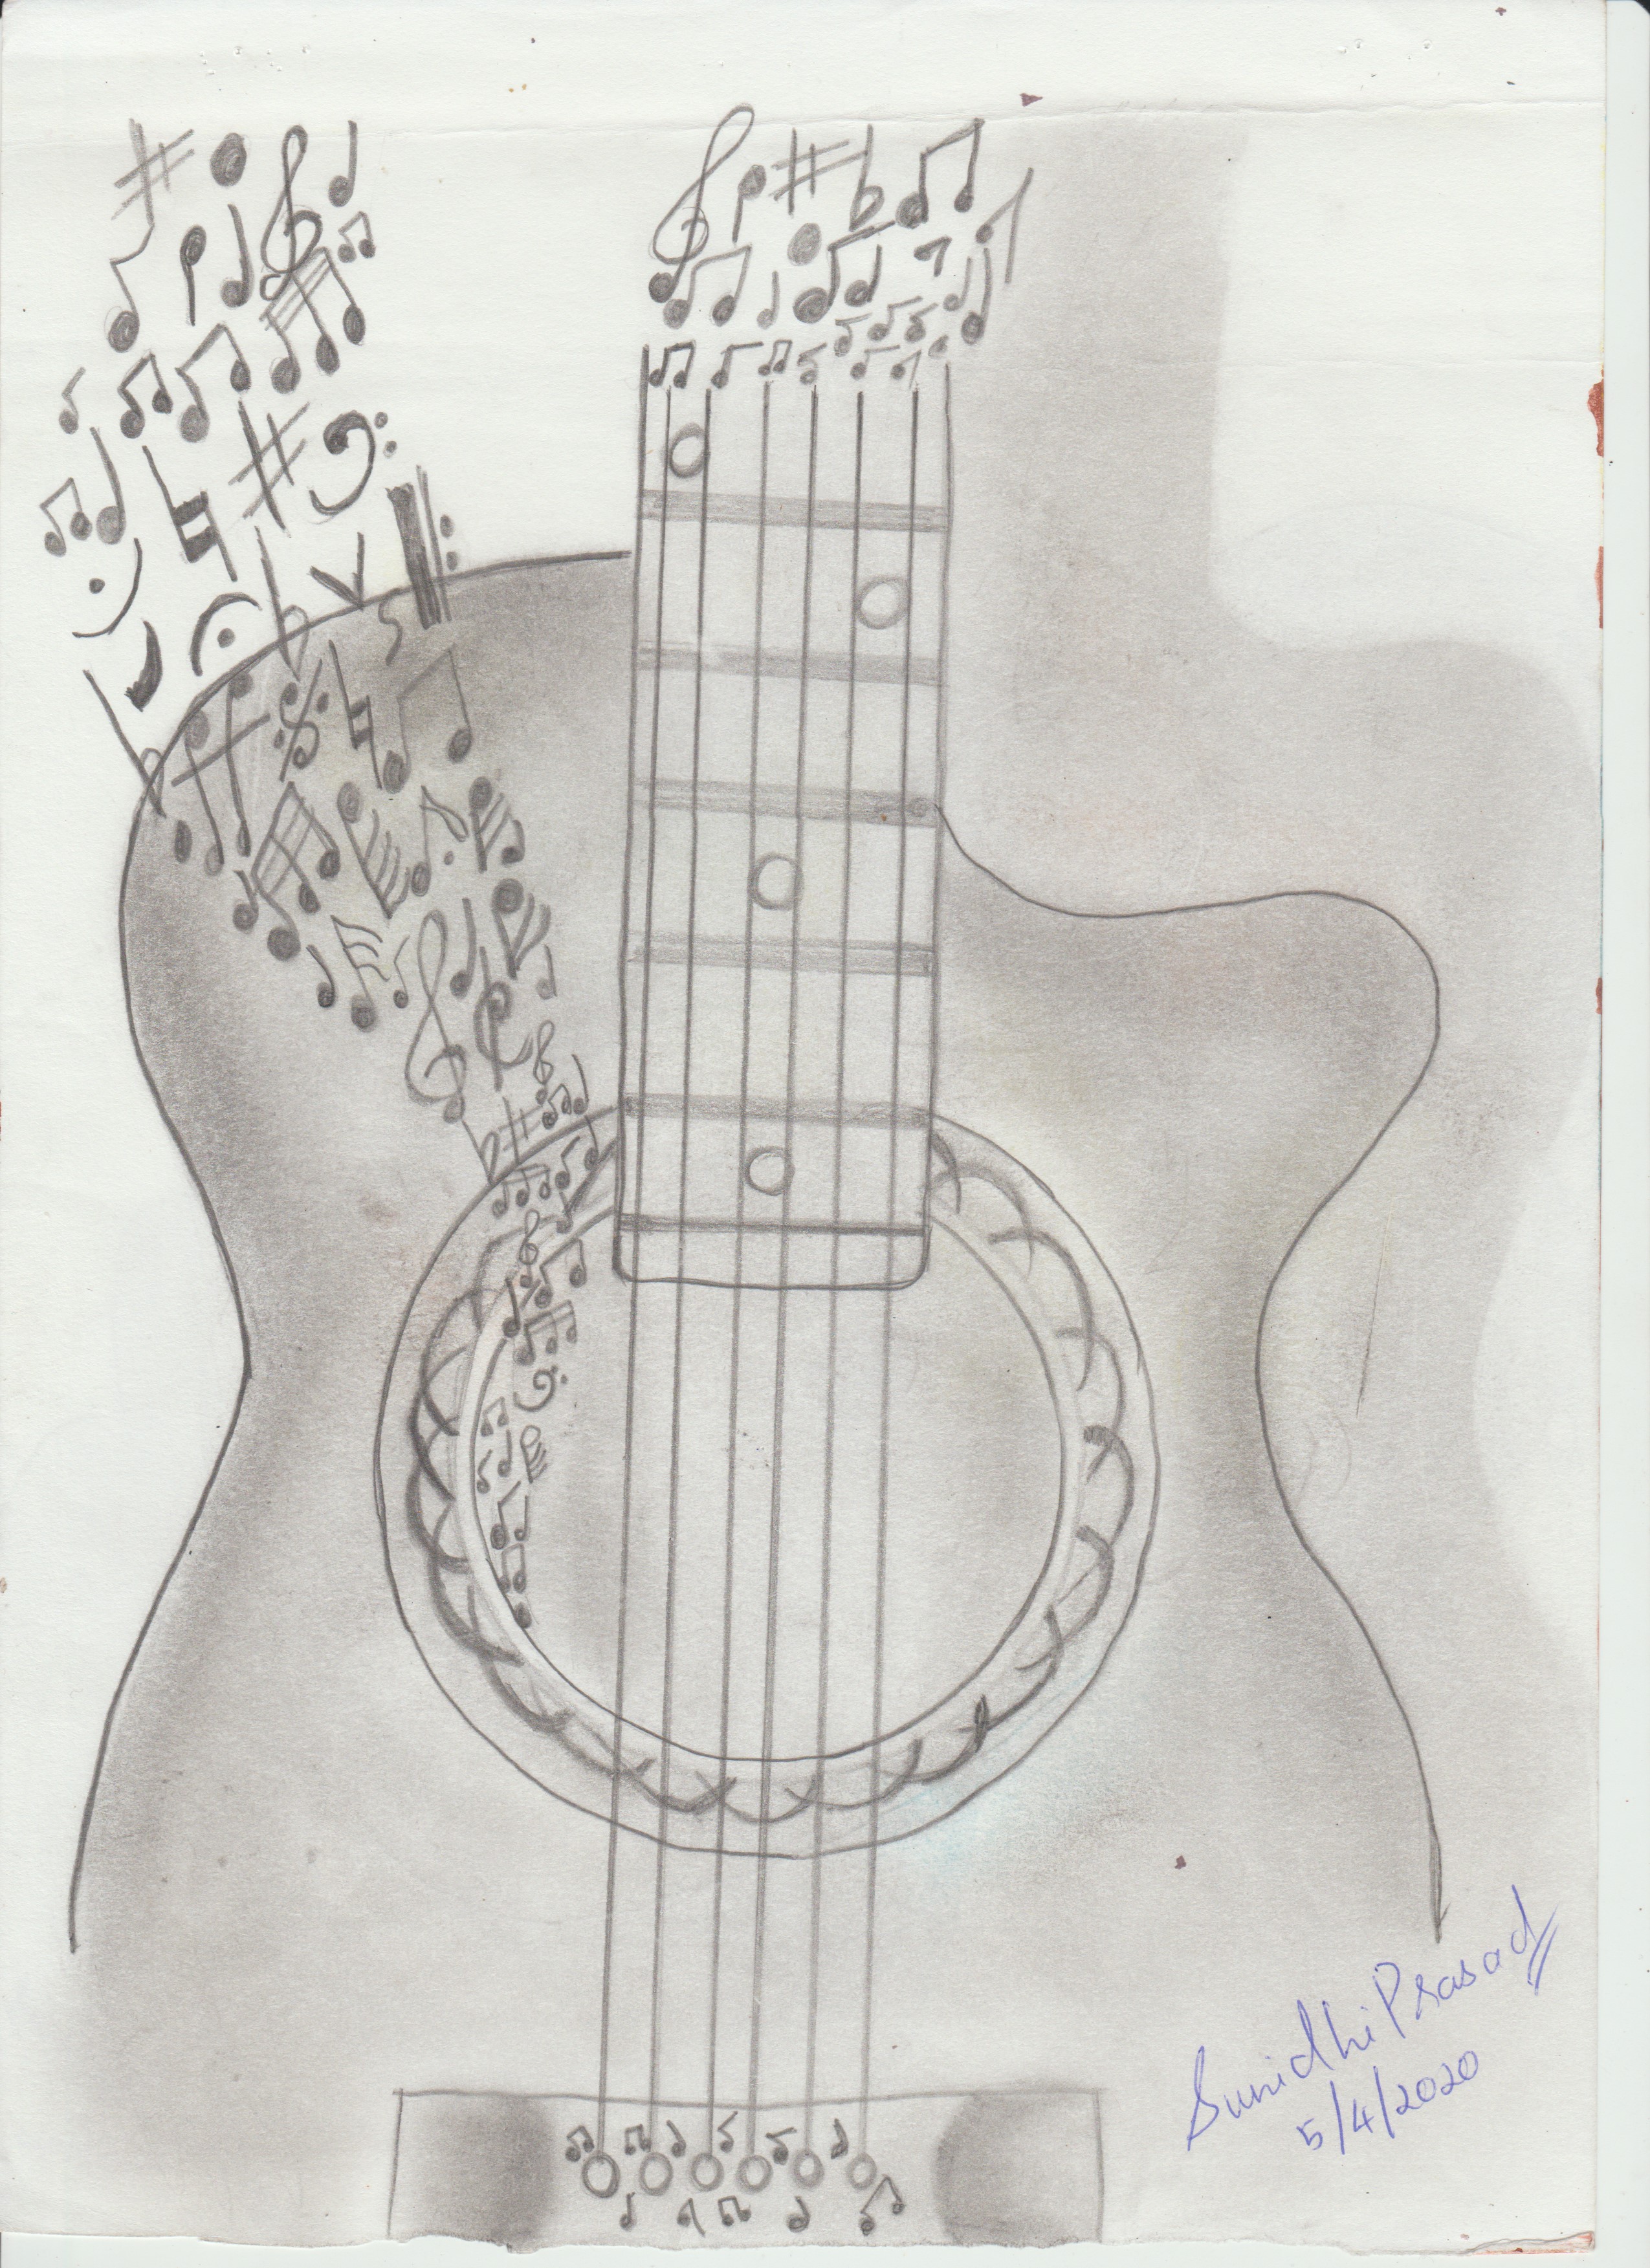 Sunidhi Prasad
5/4/2020